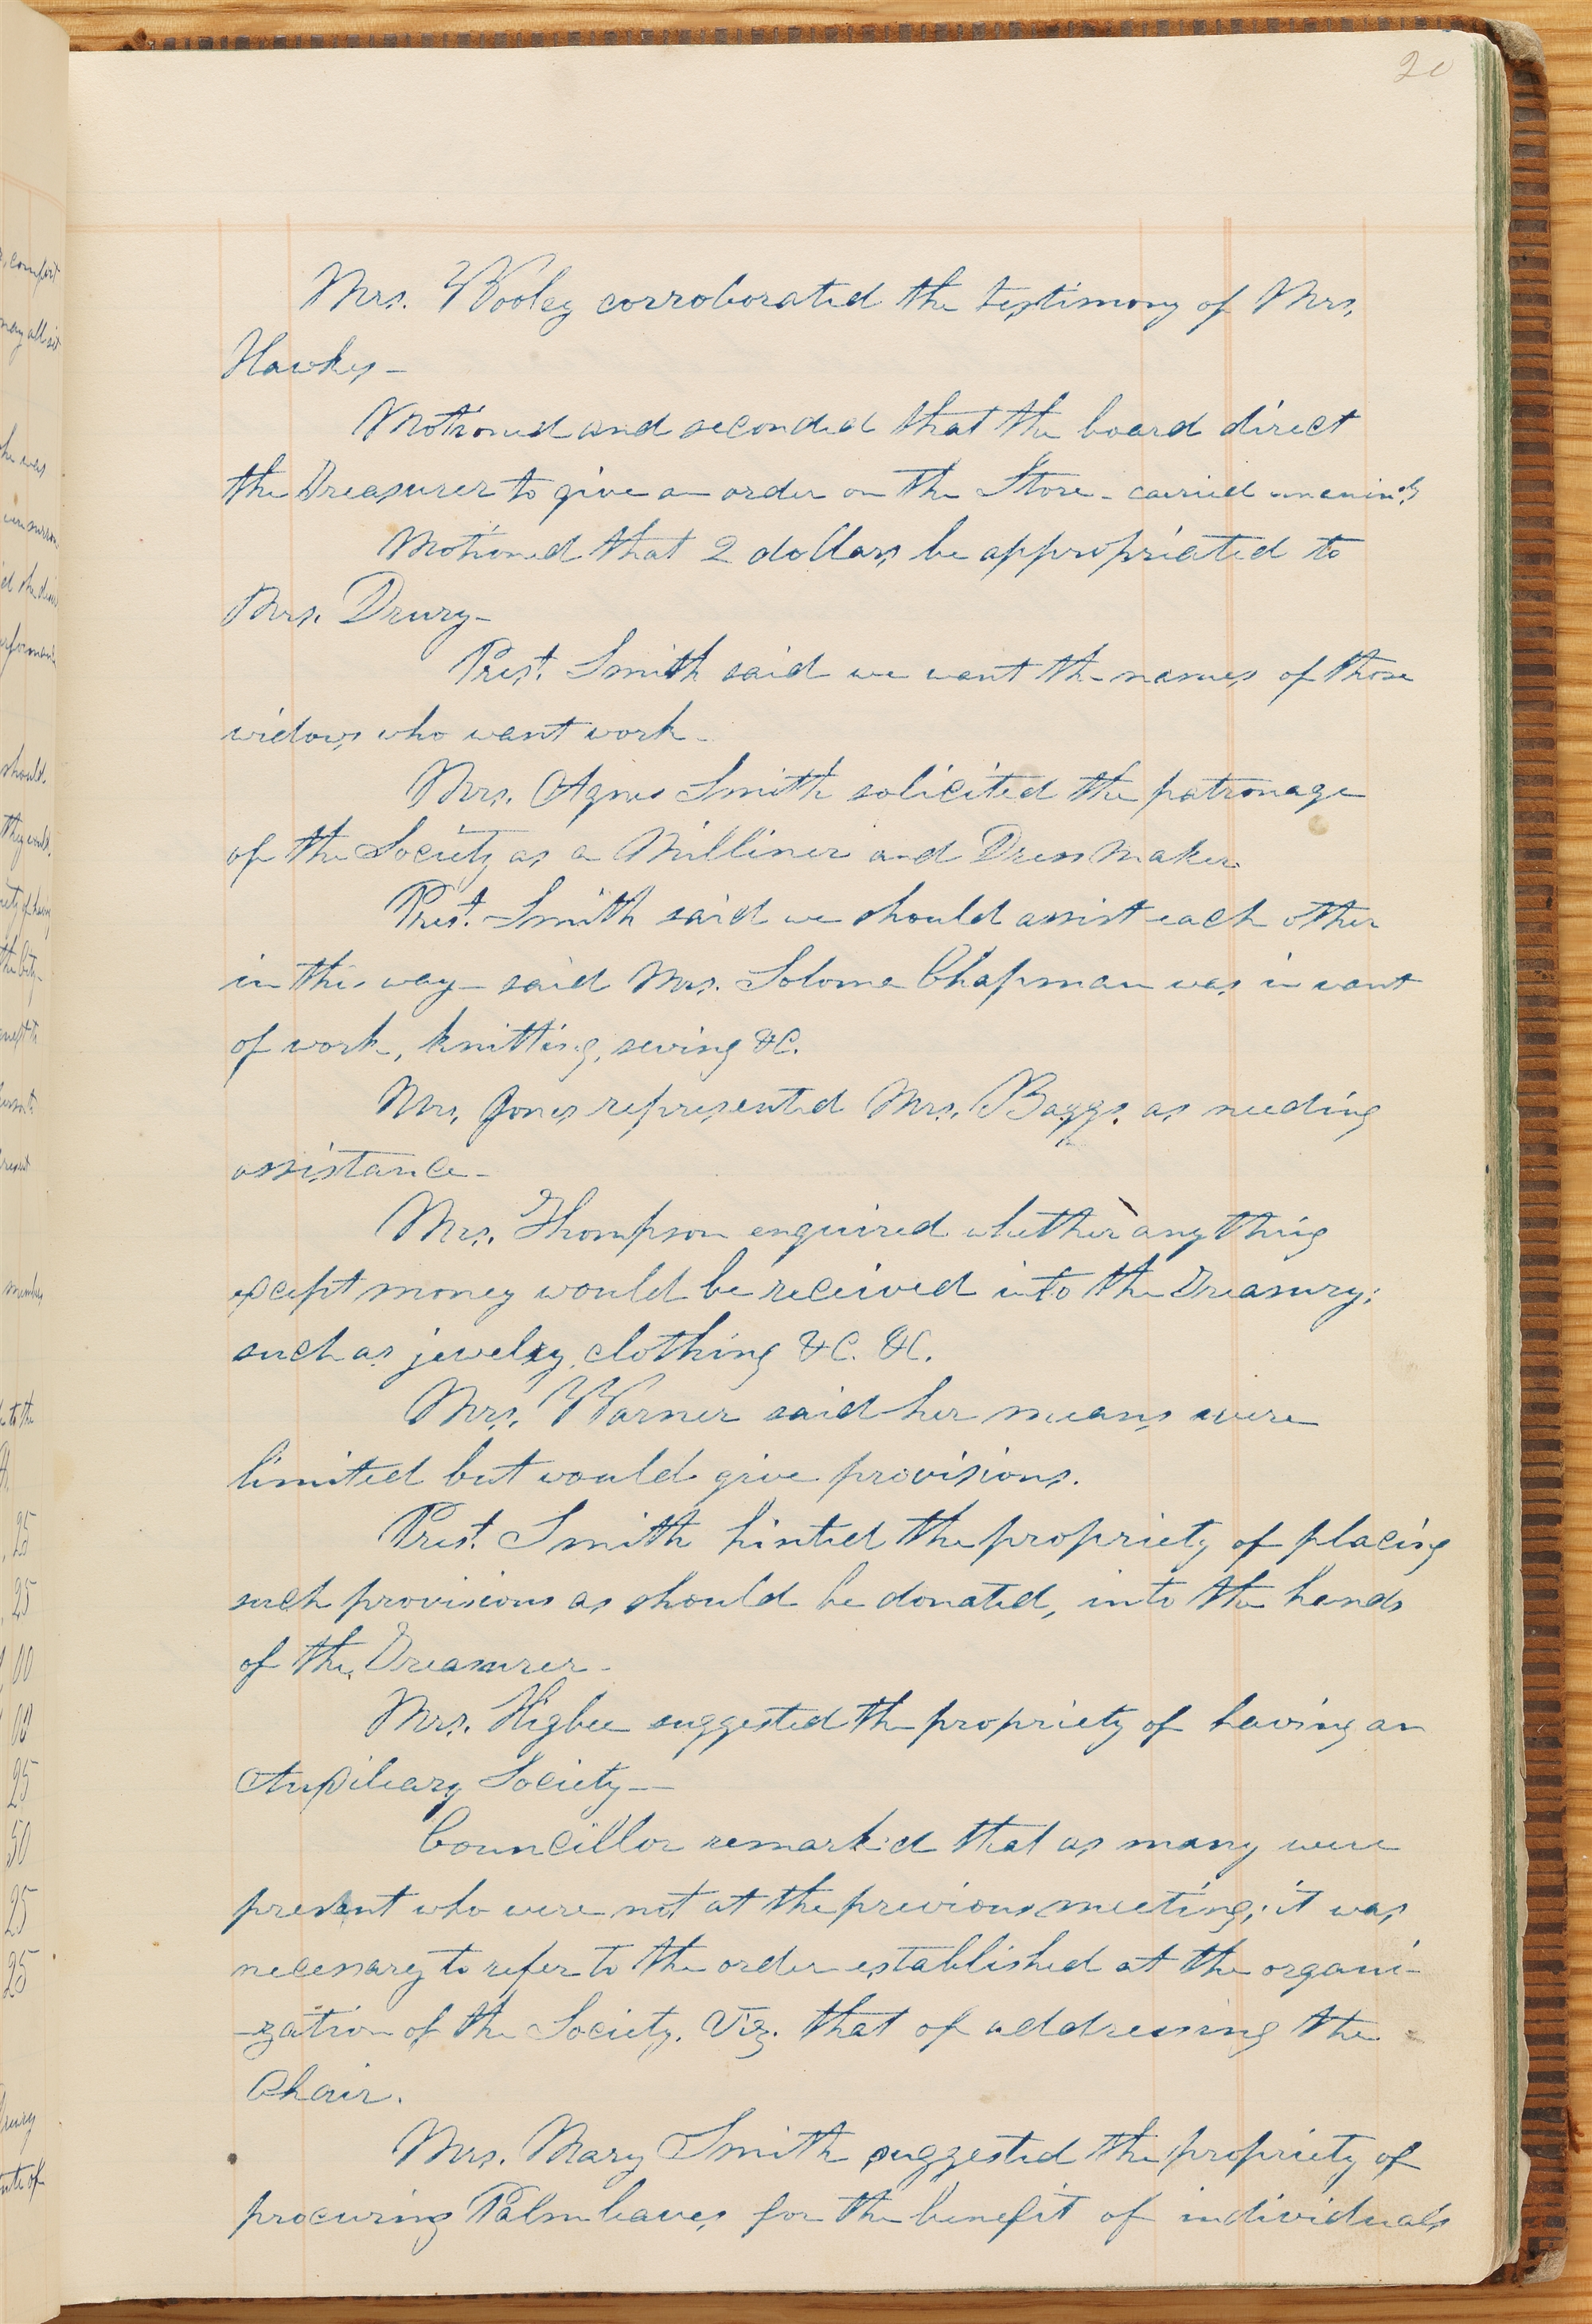 20
Mrs. Wooley corroborated the testimony of Mrs.
Hawkes-
Motioned and seconded that the board direct
the Treasurer to give an order on the Store - carried
Motioned that 2 dollars be appropriated to
Mrs. Drury-
Prest. Smith said we want the names of those
widows who want work-
Mrs. Agnes Smith solicited the patronage
of the Society as a Milliner and Dress Maker
Prest. Smith said we should assist each other
in this way- said Mrs. Solome Chapman was in want
of work, knitting, sewing &C.
Mrs. Jones represented Mrs. Baggs. as needing
assistance-
Mrs. Thompson enquired whether anything
except money would be received into the Treasury;
such as jewelry, clothing &C. &C.
Mrs. Warner said her means were
limited but would give provisions.
Prest. Smith hinted the propriety of placing
such provisions as should be donated, into the hands
of the Treasurer-
Mrs. Higbee suggested the propriety of having an
Auxiliary Society—
Councillor remarked that as many were
present who were not at the previous meeting; it was
necessary to refer to the order established at the organi-
-zation of the Society. Viz. that of addressing the
Chair.
Mrs. Mary Smith suggested the propriety of
procuring Palm leaves for the benefit of individuals